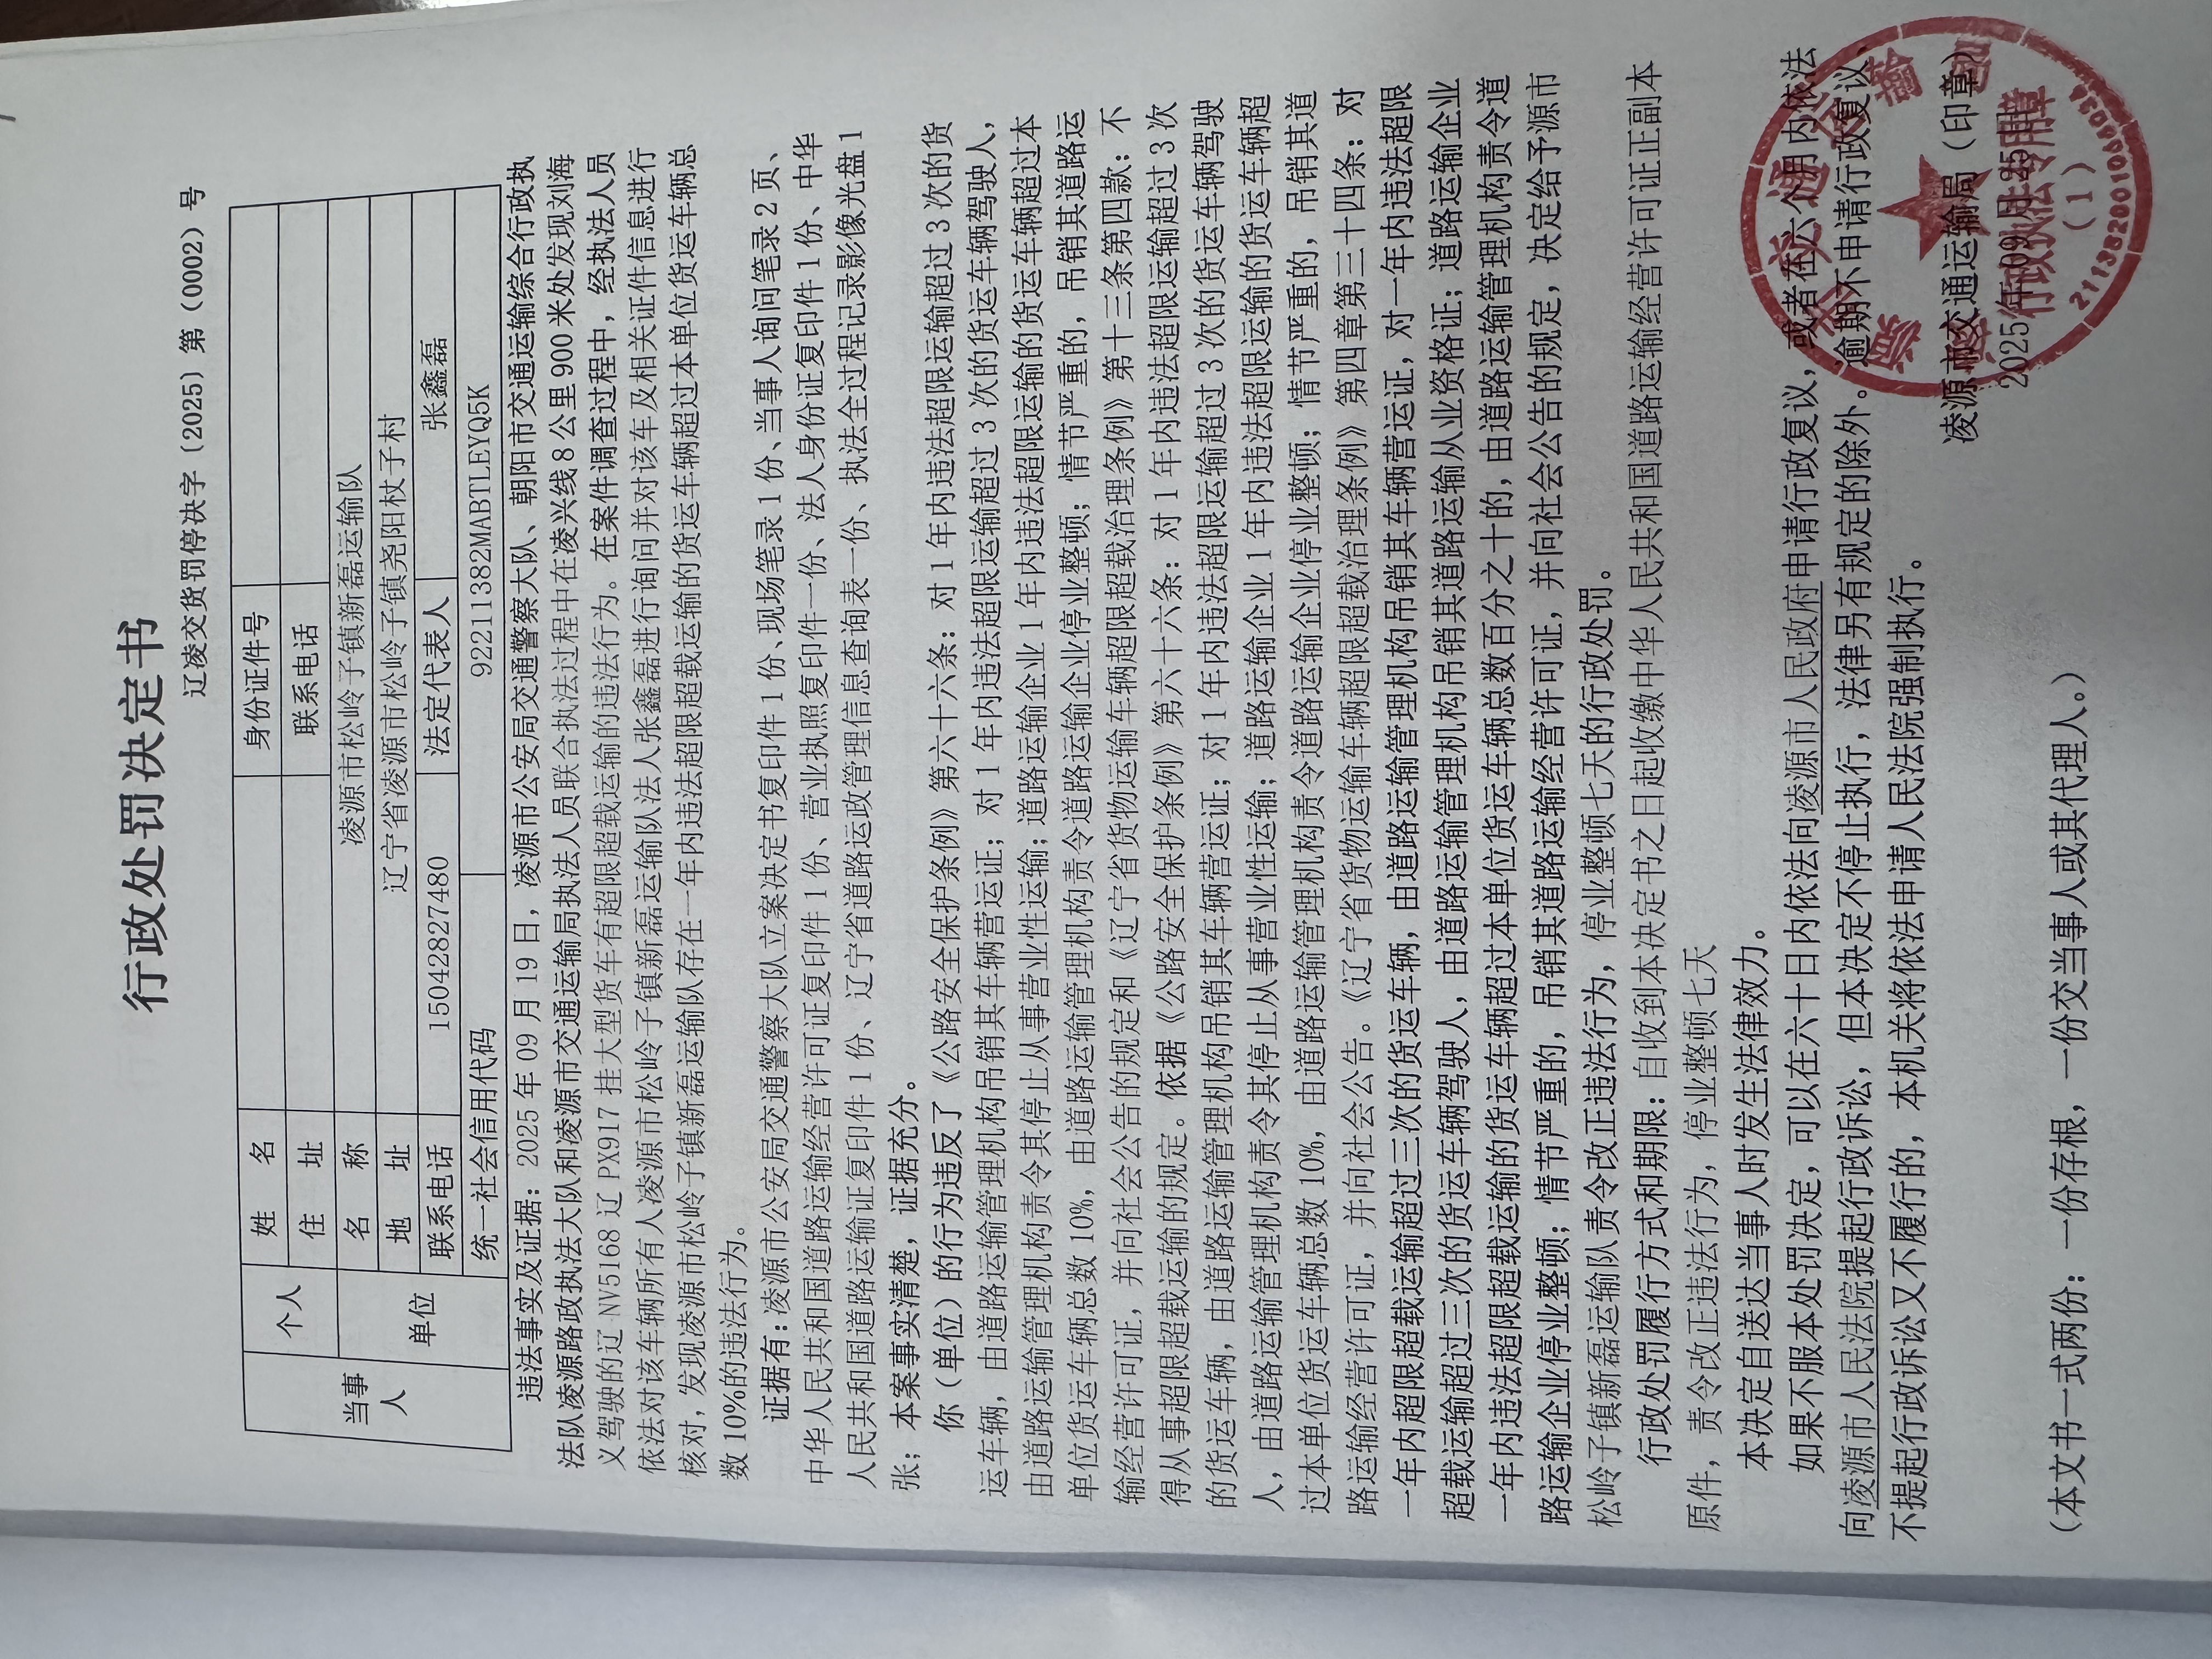 行政处罚决定书
辽凌交货罚停决字（2025）第（0002）号
当事人 个人 姓 名 身份证件号
住 址 联系电话
单位 名 称 凌源市松岭子镇新磊运输队
地 址 辽宁省凌源市松岭子镇尧阳杖子村
联系电话 15042827480 法定代表人 张鑫磊
统一社会信用代码 92211382MABTLEYQ5K
违法事实及证据：2025 年 09 月 19 日，凌源市公安局交通警察大队、朝阳市交通运输综合行政执
法队凌源路政执法大队和凌源市交通运输局执法人员联合执法过程中在凌兴线 8 公里 900 米处发现刘海
义驾驶的辽 NV5168 辽 PX917 挂大型货车有超限超载运输的违法行为。在案件调查过程中，经执法人员
依法对该车辆所有人凌源市松岭子镇新磊运输队法人张鑫磊进行询问并对该车及相关证件信息进行
核对，发现凌源市松岭子镇新磊运输队存在一年内违法超限超载运输的货运车辆超过本单位货运车辆总
数 10%的违法行为。
证据有：凌源市公安局交通警察大队立案决定书复印件 1 份、现场笔录 1 份、当事人询问笔录 2 页、
中华人民共和国道路运输经营许可证复印件 1 份、营业执照复印件一份、法人身份证复印件 1 份、中华
人民共和国道路运输证复印件 1 份、辽宁省道路运政管理信息查询表一份、执法全过程记录影像光盘 1
张；本案事实清楚，证据充分。
你（单位）的行为违反了《公路安全保护条例》第六十六条：对 1 年内违法超限运输超过 3 次的货
运车辆，由道路运输管理机构吊销其车辆营运证；对 1 年内违法超限运输超过 3 次的货运车辆驾驶人，
由道路运输管理机构责令其停止从事营业性运输；道路运输企业 1 年内违法超限运输的货运车辆超过本
单位货运车辆总数 10%，由道路运输管理机构责令道路运输企业停业整顿；情节严重的，吊销其道路运
输经营许可证，并向社会公告的规定和《辽宁省货物运输车辆超限超载治理条例》第十三条第四款：不
得从事超限超载运输的规定。依据《公路安全保护条例》第六十六条：对 1 年内违法超限运输超过 3 次
的货运车辆，由道路运输管理机构吊销其车辆营运证；对 1 年内违法超限运输超过 3 次的货运车辆驾驶
人，由道路运输管理机构责令其停止从事营业性运输；道路运输企业 1 年内违法超限运输的货运车辆超
过本单位货运车辆总数 10%，由道路运输管理机构责令道路运输企业停业整顿；情节严重的，吊销其道
路运输经营许可证，并向社会公告。《辽宁省货物运输车辆超限超载治理条例》第四章第三十四条：对
一年内超限超载运输超过三次的货运车辆，由道路运输管理机构吊销其车辆营运证，对一年内违法超限
超载运输超过三次的货运车辆驾驶人，由道路运输管理机构吊销其道路运输从业资格证；道路运输企业
一年内违法超限超载运输的货运车辆超过本单位货运车辆总数百分之十的，由道路运输管理机构责令道
路运输企业停业整顿；情节严重的，吊销其道路运输经营许可证，并向社会公告的规定，决定给予源市
松岭子镇新磊运输队责令改正违法行为，停业整顿七天的行政处罚。
行政处罚履行方式和期限：自收到本决定书之日起收缴中华人民共和国道路运输经营许可证正副本
原件，责令改正违法行为，停业整顿七天
本决定自送达当事人时发生法律效力。
如果不服本处罚决定，可以在六十日内依法向凌源市人民政府申请行政复议，或者在六个月内依法
向凌源市人民法院提起行政诉讼，但本决定不停止执行，法律另有规定的除外。逾期不申请行政复议、
不提起行政诉讼又不履行的，本机关将依法申请人民法院强制执行。
凌源市交通运输局（印章）
2025 年 09 月 25
行政执法专用章
（1）
（本文书一式两份：一份存根，一份交当事人或其代理人。）